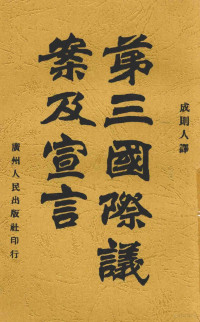 成則人譯
第三國際議
案及宣言
廣州人民出版社印行